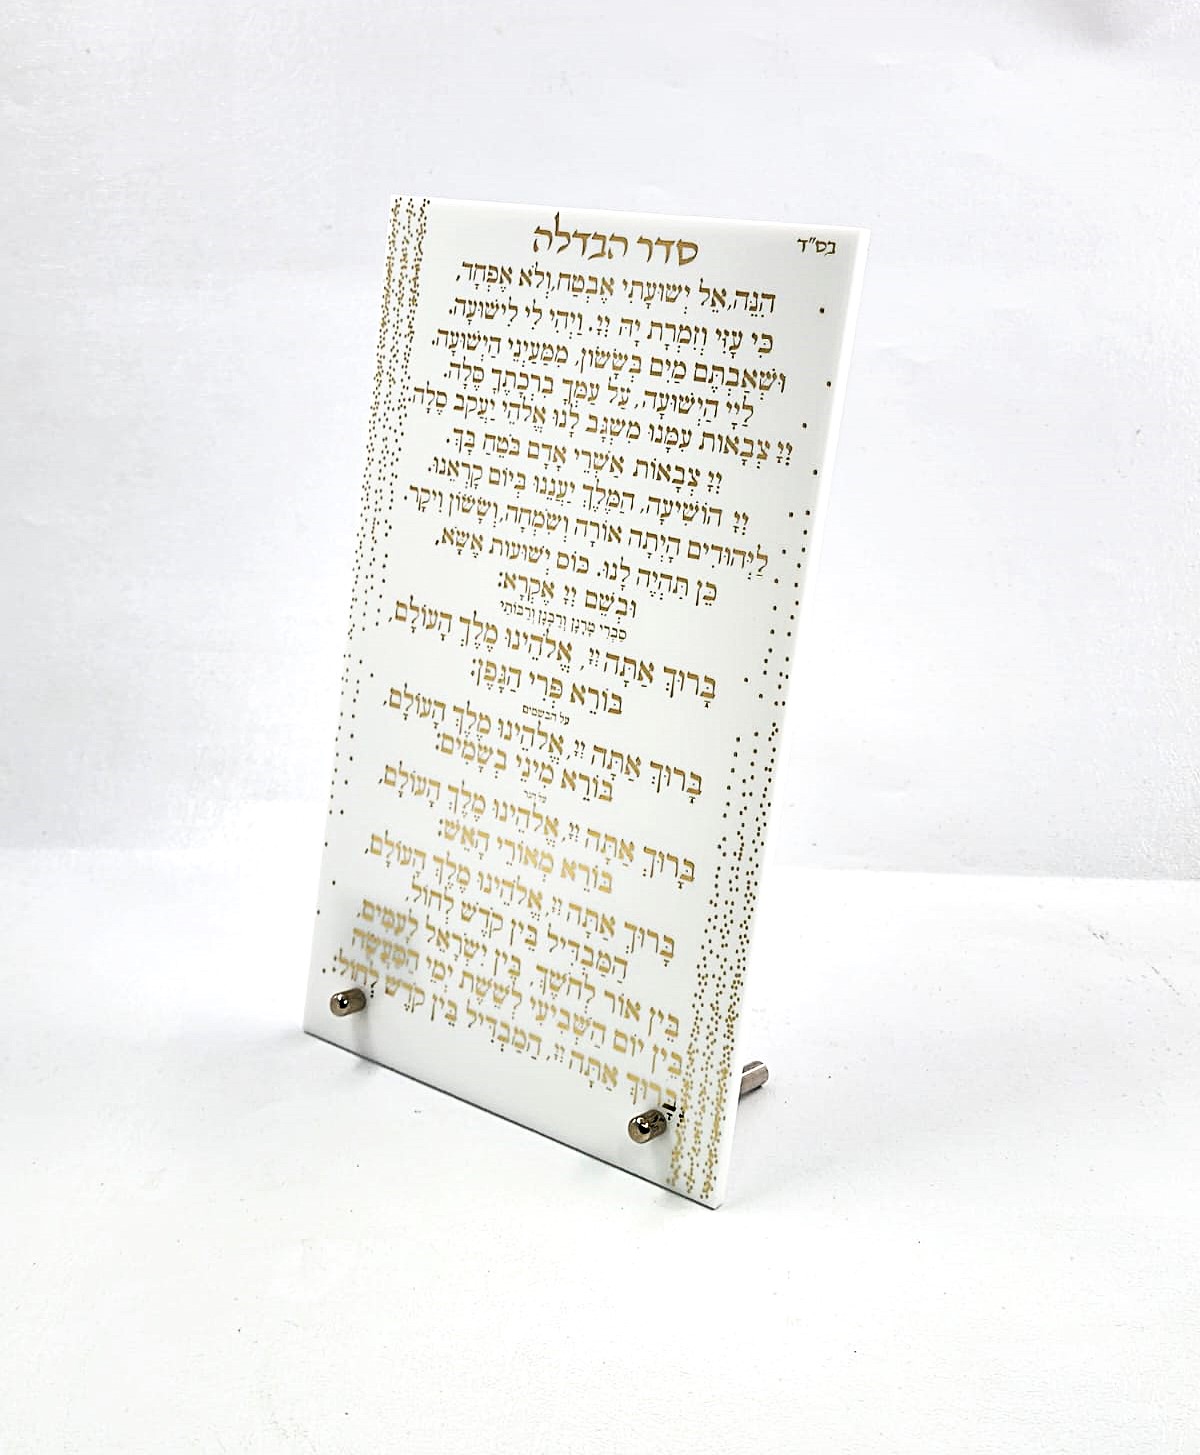 בס"ד
סדר הבדלה
הִנֵּה,אֵל יְשׁוּעָתִי אֶבְטַח,וְלֹא אֶפְחָד,
כִּי עָזִּי וְזִמְרָת יָהּ יְיָ. וַיְהִי לִי לִישׁוּעָה.
וּשְׁאַבְתֶּם מַיִם בְּשָׂשׂוֹן, מִמַּעַיְנֵי הַיְשׁוּעָה.
לַיְיָ הַיְשׁוּעָה, עַל עַמְּךָ בִרְכָתֶךָ סֶּלָה.
יְיָ צְבָאוֹת עִמָּנוּ מִשְׂגָּב לָנוּ אֱלֹהֵי יַעֲקֹב סֶלָה.
יְיָ צְבָאוֹת אַשְׁרֵי אָדָם בֹּטֵחַ בָּךְ.
יְיָ הוֹשִׁיעָה, הַמֶּלֶךְ יַעֲנֵנוּ בְּיוֹם קָרְאֵנוּ.
לַיְּהוּדִים הָיְתָה אוֹרָה וְשִׂמְחָה,וְשָׂשׂוֹן וִיקָר.
כֵּן תִּהְיֶה לָנוּ. כּוֹס יְשׁוּעוֹת אֶשָּׂא,
וּבְשֵׁם יְיָ אֶקְרָא:
סַבְרִי מָרָנָן וְרַבָּנָן וְרַבּוֹתַי
בָּרוּךְ אַתָּה יְיָ, אֱלֹהֵינוּ מֶלֶךְ הָעוֹלָם,
בּוֹרֵא פְּרִי הַגָּפֶן:
על הבשמים
בָּרוּךְ אַתָּה יְיָ, אֱלֹהֵינוּ מֶלֶךְ הָעוֹלָם,
בּוֹרֵא מִינֵי בְשָׂמִים:
על הנר
בָּרוּךְ אַתָּה יְיָ, אֱלֹהֵינוּ מֶלֶךְ הָעוֹלָם,
בּוֹרֵא מְאוֹרֵי הָאֵשׁ:
בָּרוּךְ אַתָּה יְיָ, אֱלֹהֵינוּ מֶלֶךְ הָעוֹלָם,
הַמַּבְדִּיל בֵּין קֹדֶשׁ לְחוֹל,
בֵּין אוֹר לְחֹשֶׁךְ, בֵּין יִשְׂרָאֵל לָעַמִּים,
בֵּין יוֹם הַשְּׁבִיעִי לְשֵׁשֶׁת יְמֵי הַמַּעֲשֶׂה
בָּרוּךְ אַתָּה יְיָ, הַמַּבְדִּיל בֵּין קֹדֶשׁ לְחוֹל: